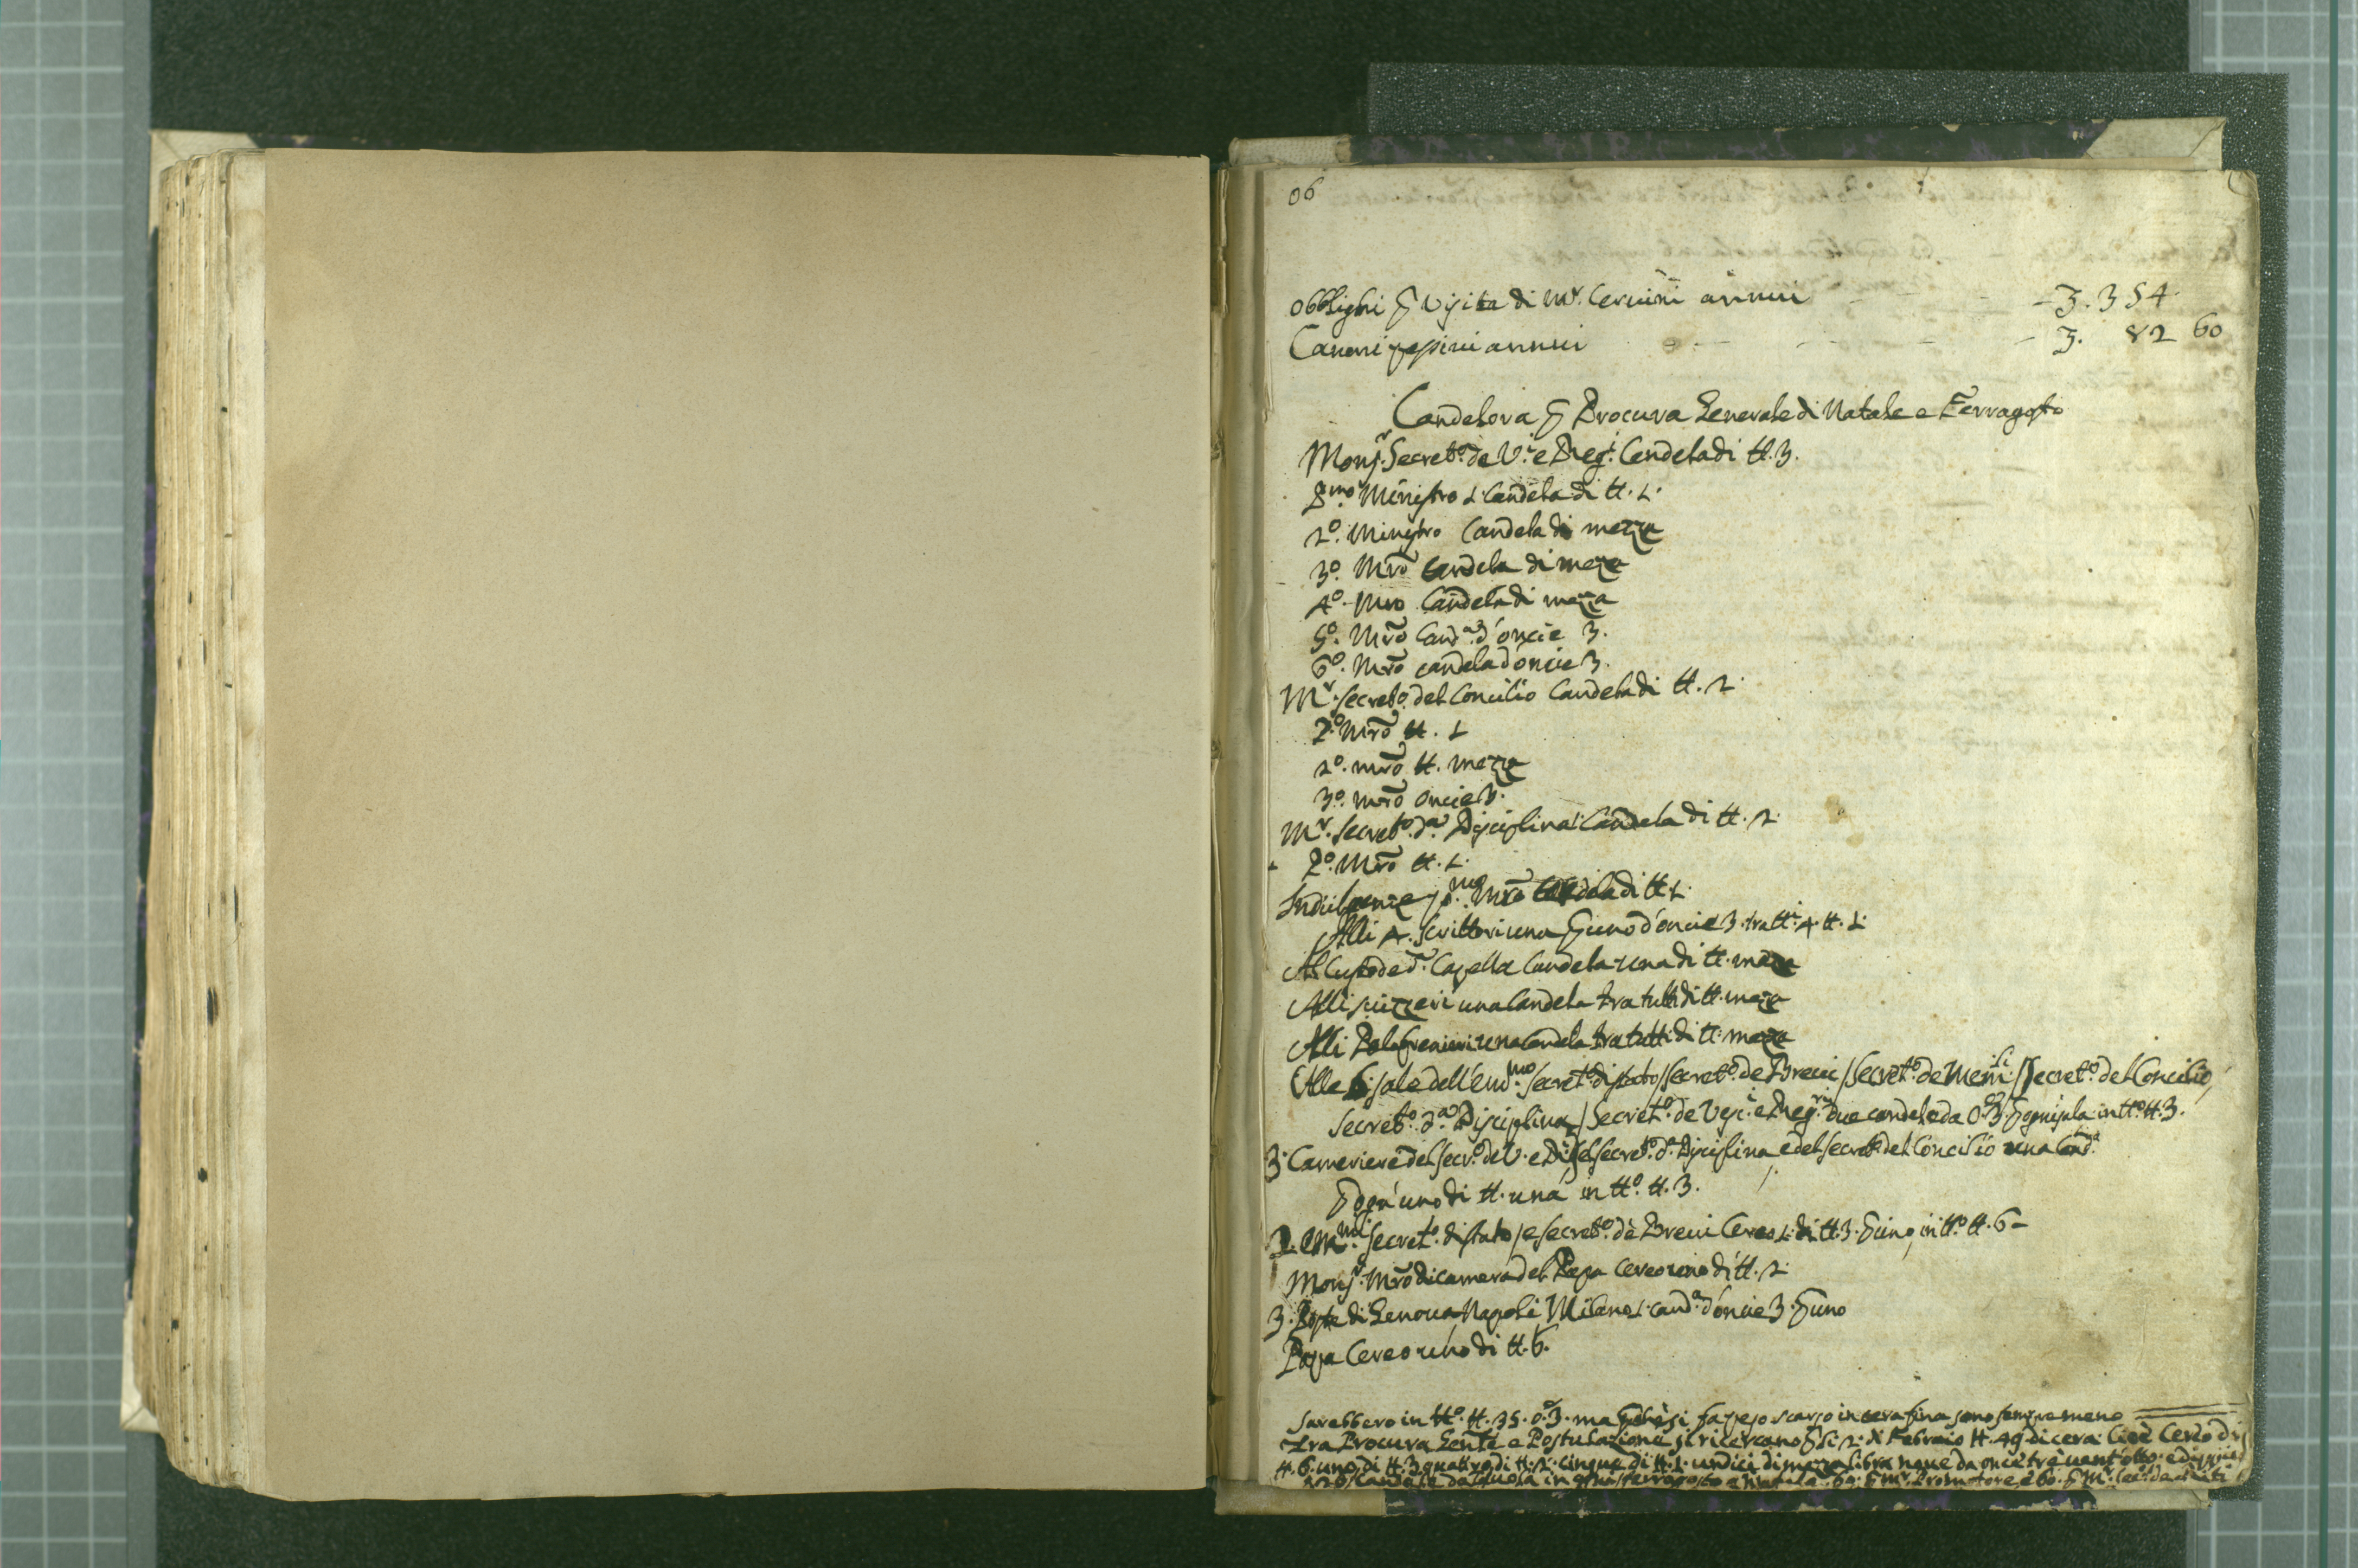 06
Obblighi ꝑ Visita di Mr. Cervini annui - - - - 3. 354
Canoni passivi annui - - - - 3. 82 60
Candelora ꝑ Procura Generale di Natale e Ferragosto
Monsr. Secreto. de V.i e Reg.i Candela di ℔. 3.
Pmo. Ministro 1. Candela di ℔. 1.
2o. Ministro Candela di mezza
3o. Mrõ Candela di meza
4o. Mro Candela di meza
5o. Mrõ Canda. d'oncie 3.
6o. Mrõ candela d'oncie 3.
Mr. Secreto. del Concilio Candela di ℔. 2.
P.o Mrõ ℔. 1
2o. mrõ ℔. mezza
3o. mrõ oncie 3.
Mr. Secreto. da. Disciplina 1. Candela di ℔. 2.
P.o Mrõ ℔. 1.
Indulgenze pmo. Mrõ Candela di ℔ 1.
Alli 4. Scrittori una ꝑ uno d'oncie 3. tra tt.i 4. ℔. 1.
Al Custode d. Capella Candela una di ℔. meza
Alli suizzeri una Candela tra tutti di ℔. meza
Alli Palafrenieri una Candela tra tutti di ℔. meza
Alle 6. sale dell'Emmo. Secreto. di stato / Secreto. de Brevi / Secreto. de Memli. / Secreto. del Concilio /
Secreto. da. Disciplina / Secreto. de Vesc.i e Reg.ri due candele da O.e 3. ꝑ ogni sala in tto. ℔. 3.
3. Cameriere del Secr.o de V. e del Secreto. da. Disciplina, e del Secreto. del Concilio una Canda.
ꝑ ogn'uno di ℔. una in tto. ℔. 3.
2. Emmi. Secreto. di stato / e Secreto. de Brevi Cereo 1. di ℔. 3. ꝑ uno, in tto. ℔. 6 -
Monsr. Mrõ di camera del Papa Cereo uno di ℔. 2.
3. Poste di Genova Napoli Milano 1. canda. d'oncie 3. ꝑ uno
Papa Cereo uno di ℔. 6.
Sarebbero in tto. ℔. 35. o. 3. ma ꝑche si fa peso scarso in cera fina sono sempre meno
Tra Procura Genle e Postulazione si ricercano ꝑ li 2. di Febraio ℔. 49 di cera. Cioè Cereo di
℔. 6. uno, di ℔. 3 quattro, di ℔. 2. cinque, di ℔. 1. undici, di meza libra nove, da oncie tre vent'otto.